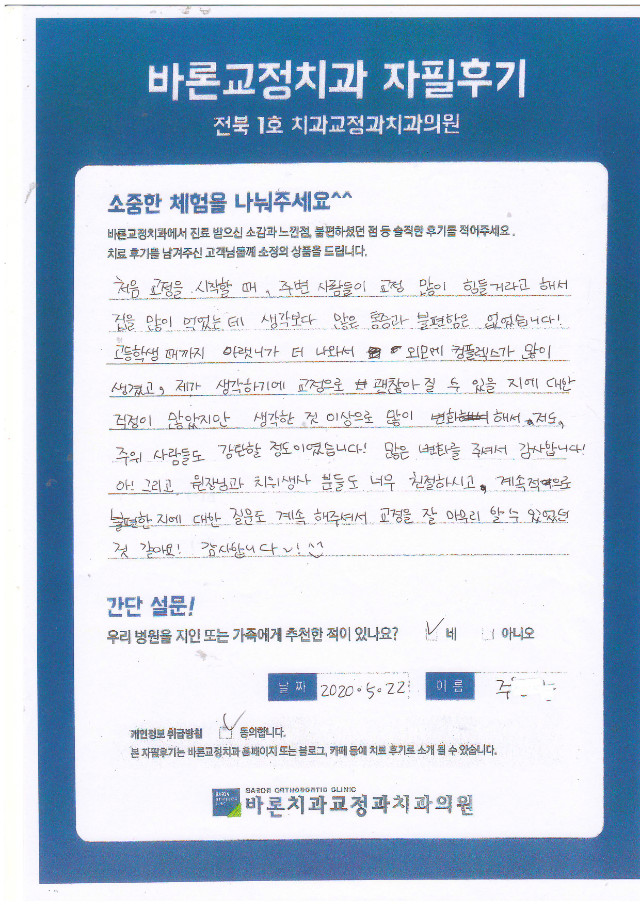 바론교정치과 자필후기
전북 1호 치과교정과치과의원
소중한 체험을 나눠주세요^^
바론교정치과에서 진료 받으신 소감과 느낀점, 불편하셨던 점 등 솔직한 후기를 적어주세요.
치료 후기를 남겨주신 고객님들께 소정의 상품을 드립니다.
처음 교정을 시작할 때, 주변 사람들이 교정 많이 힘들거라고 해서
겁을 많이 먹었는데 생각보다 많은 통증과 불편함은 없었습니다!
고등학생 때까지 아랫니가 더 나와서 외모에 컴플렉스가 많이
생겼고, 제가 생각하기에 교정으로 괜찮아 질 수 있을 지에 대한
걱정이 많았지만 생각한 것 이상으로 많이 변화해서 해서, 저도,
주위 사람들도 감탄할 정도이였습니다! 많은 변화를 주셔서 감사합니다!
아! 그리고 원장님과 치위생사 분들도 너무 친절하시고, 계속적으로
불편한지에 대한 질문도 계속 해주셔서 교정을 잘 마무리 할 수 있었던
것 같아요! 감사합니다~!
간단 설문!
우리 병원을 지인 또는 가족에게 추천한 적이 있나요? 네 아니오
날짜 2020.5.22 이름 주
개인정보 취급방침 동의합니다.
본 자필후기는 바론교정치과 홈페이지 또는 블로그, 카페 등에 치료 후기로 소개 될 수 있습니다.
BARON ORTHODONTIC CLINIC
바론치과교정과치과의원